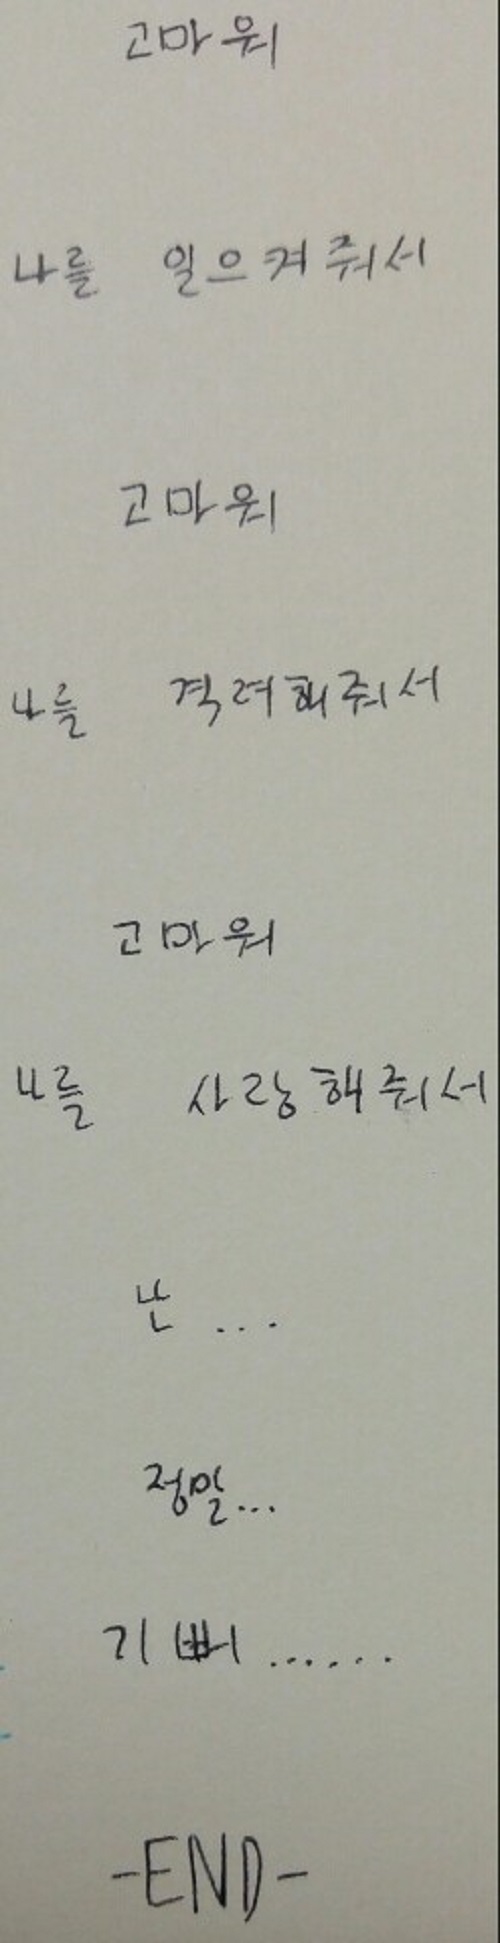 고마워
나를 일으켜줘서
고마워
나를 격려해줘서
고마워
나를 사랑해줘서
난 ...
정말...
기뻐......
-END-